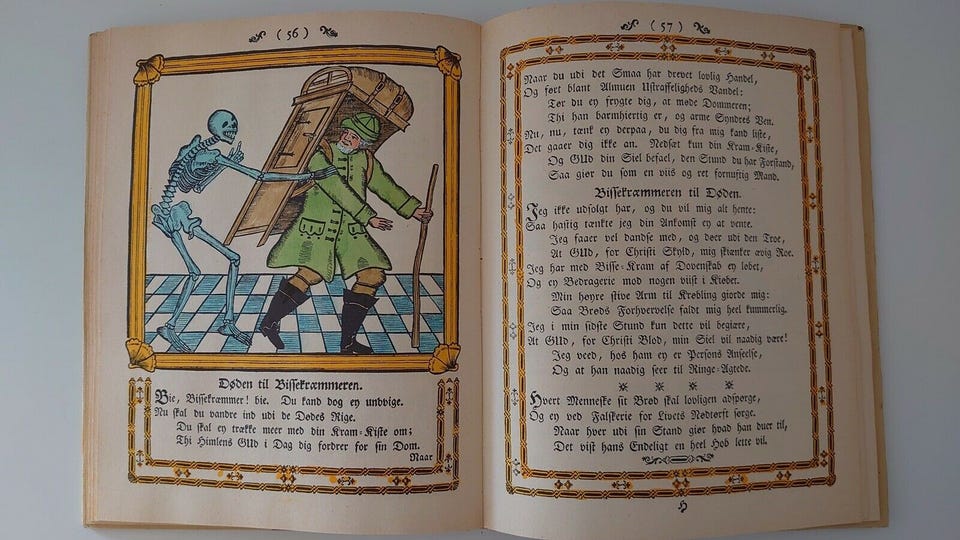 ( 56 )
Døden til Bissekræmmeren.
Bie, Bissekræmmer! bie. Du kand dog ey undvige.
Nu skal du vandre ind udi de Dødes Rige.
Du skal ey trække meer med din Kram-Kiste om;
Thi Himlens GUd i Dag dig fordrer for sin Dom.
Naar
( 57 )
Naar du udi det Smaa har drevet lovlig Handel,
Og ført blant Almuen Ustraffeligheds Vandel:
Tør du ey frygte dig, at møde Dommeren;
Thi han barmhiertig er, og arme Syndres Ven.
Nu, nu, tænk ey derpaa, du dig fra mig kand liste,
Det gaaer dig ikke an. Nedsæt kun din Kram-Kiste,
Og GUd din Siel befael, den Stund du har Forstand,
Saa giør du som en viis og ret fornuftig Mand.
Bissekræmmeren til Døden.
Jeg ikke udsolgt har, og du vil mig alt hente:
Saa hastig tænkte jeg din Ankomst ey at vente.
Jeg faaer vel dandse med, og døer udi den Troe,
At GUd, for Christi Skyld, mig skiænker ævig Roe.
Jeg har med Bisse-Kram af Dovenskab ey løbet,
Og ey Bedragerie mod nogen viist i Kiøbet.
Min høyre stive Arm til Krøbling giorde mig:
Saa Brøds Forhvervelse faldt mig heel kummerlig.
Jeg i min sidste Stund kun dette vil begiære,
At GUd, for Christi Blod, min Siel vil naadig være!
Jeg veed, hos ham ey er Persons Anseelse,
Og at han naadig seer til Ringe-Agtede.
Hvert Menneske sit Brød skal lovligen adspørge,
Og ey ved Falskerie for Livets Nødtørft sørge.
Naar hver udi sin Stand giør hvad han duer til,
Det vist hans Endeligt en heel Hob lette vil.
H